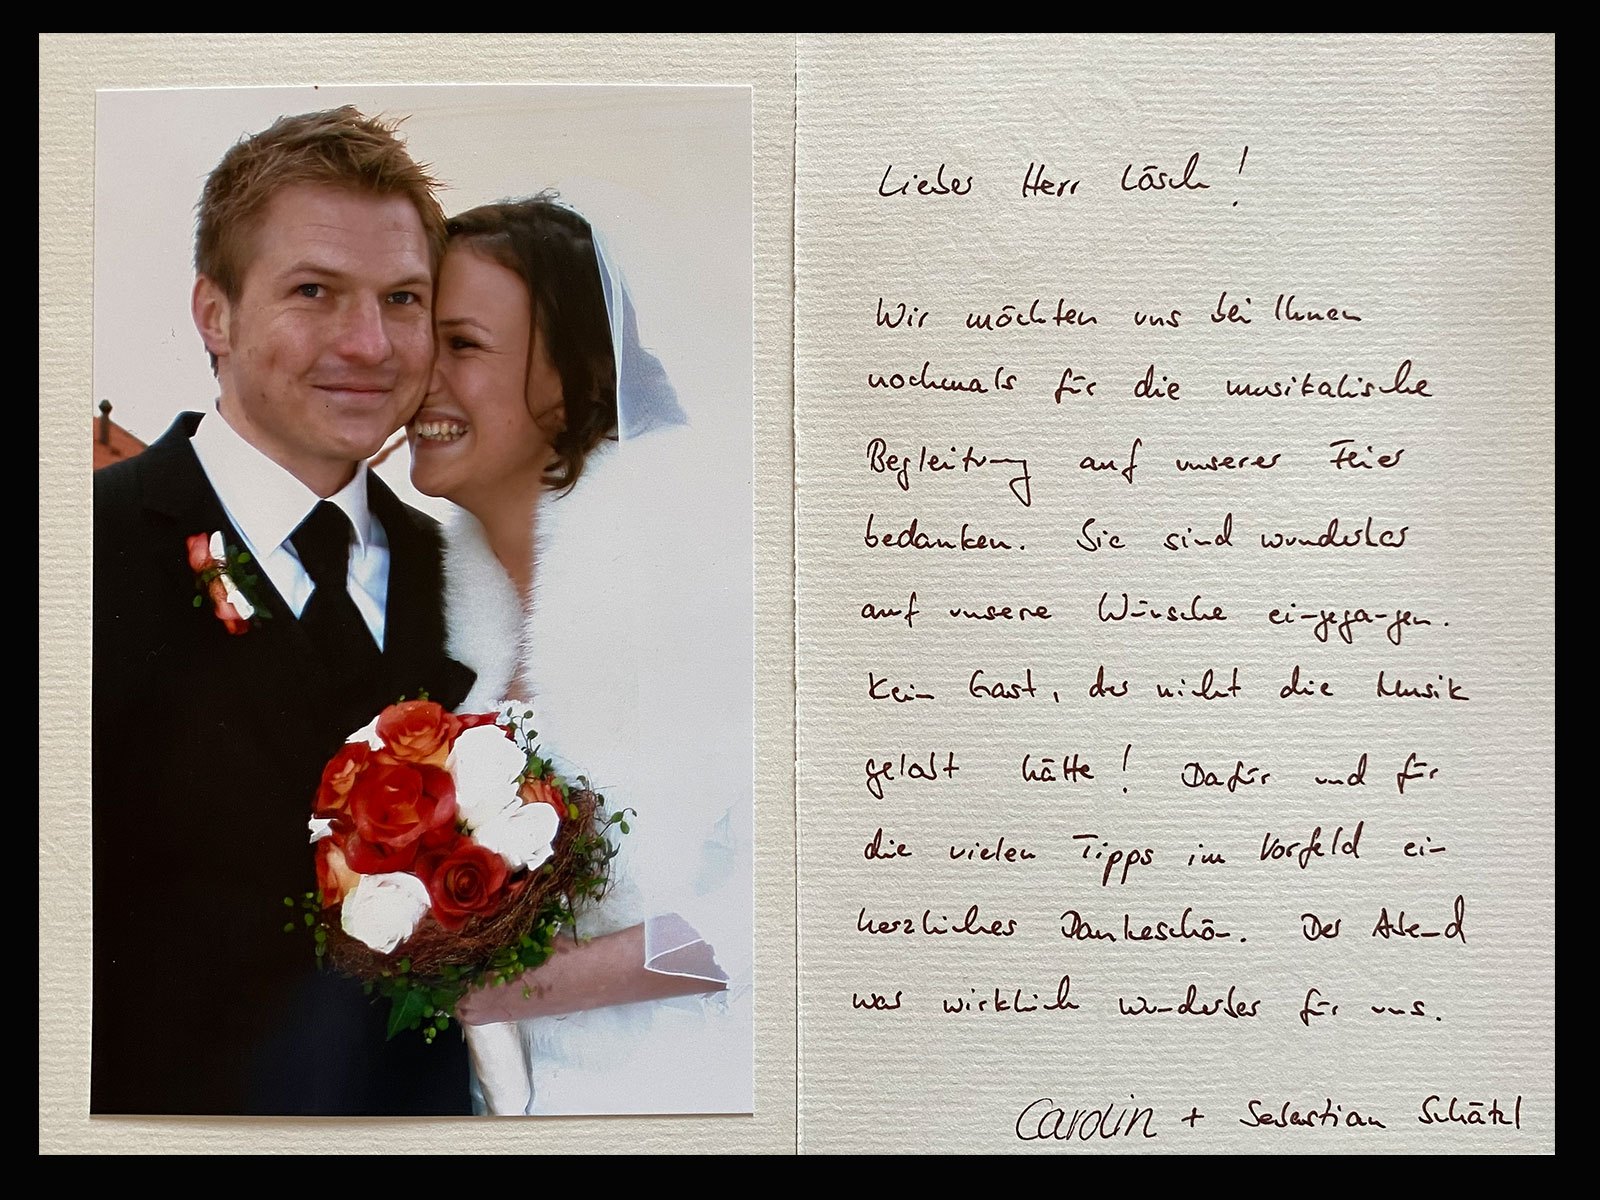 Lieber Herr Lösch!
Wir möchten uns bei Ihnen
nochmals für die musikalische
Begleitung auf unserer Feier
bedanken. Sie sind wunderbar
auf unsere Wünsche eingegangen.
Kein Gast, der nicht die Musik
gelobt hätte! Dafür und für
die vielen Tipps im Vorfeld ein
herzliches Dankeschön. Der Abend
war wirklich wunderbar für uns.
Carolin + Sebastian Schätzl